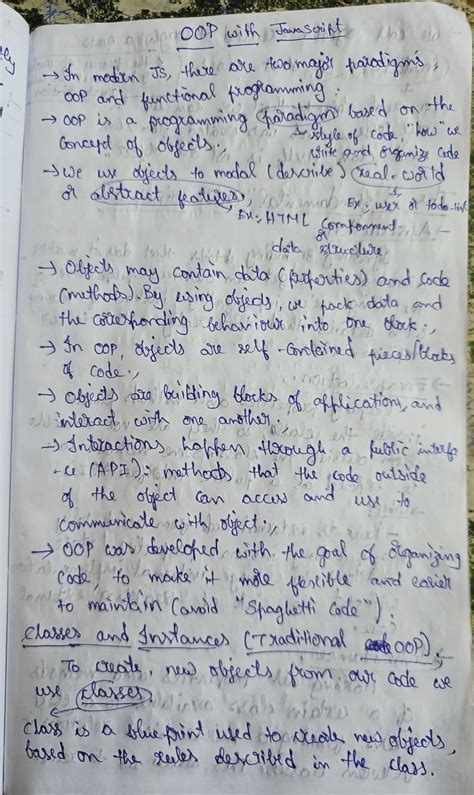 OOP with JavaScript
→ In modern JS, there are two major paradigms,
OOP and functional programming.
→ OOP is a programming paradigm based on the
concept of objects.,
→ style of code, "how" we
write and organize code
→ We use objects to modal (describe) real-world
or abstract features,
Ex:, user or todo-list
Ex:, HTML Component
or
data structure
→ Objects may contain data (properties) and code
(methods). By using objects, we pack data and
the corresponding behaviour into one block.,
→ In OOP, objects are self-contained pieces/blocks
of code.,
→ Objects are building blocks of applications, and
interact with one another.,
→ Interactions happen through a public interfa
-ce (API): methods that the code outside
of the object can access and use to
communicate with object.,
→ OOP was developed with the goal of organizing
code, to make it more flexible and easier
to maintain (avoid "Spaghetti Code").
Classes and Instances (Traditional OOP),
To create, new objects from our code we
use classes.
Class is a blueprint used to create new objects,
based on the rules described in the class.